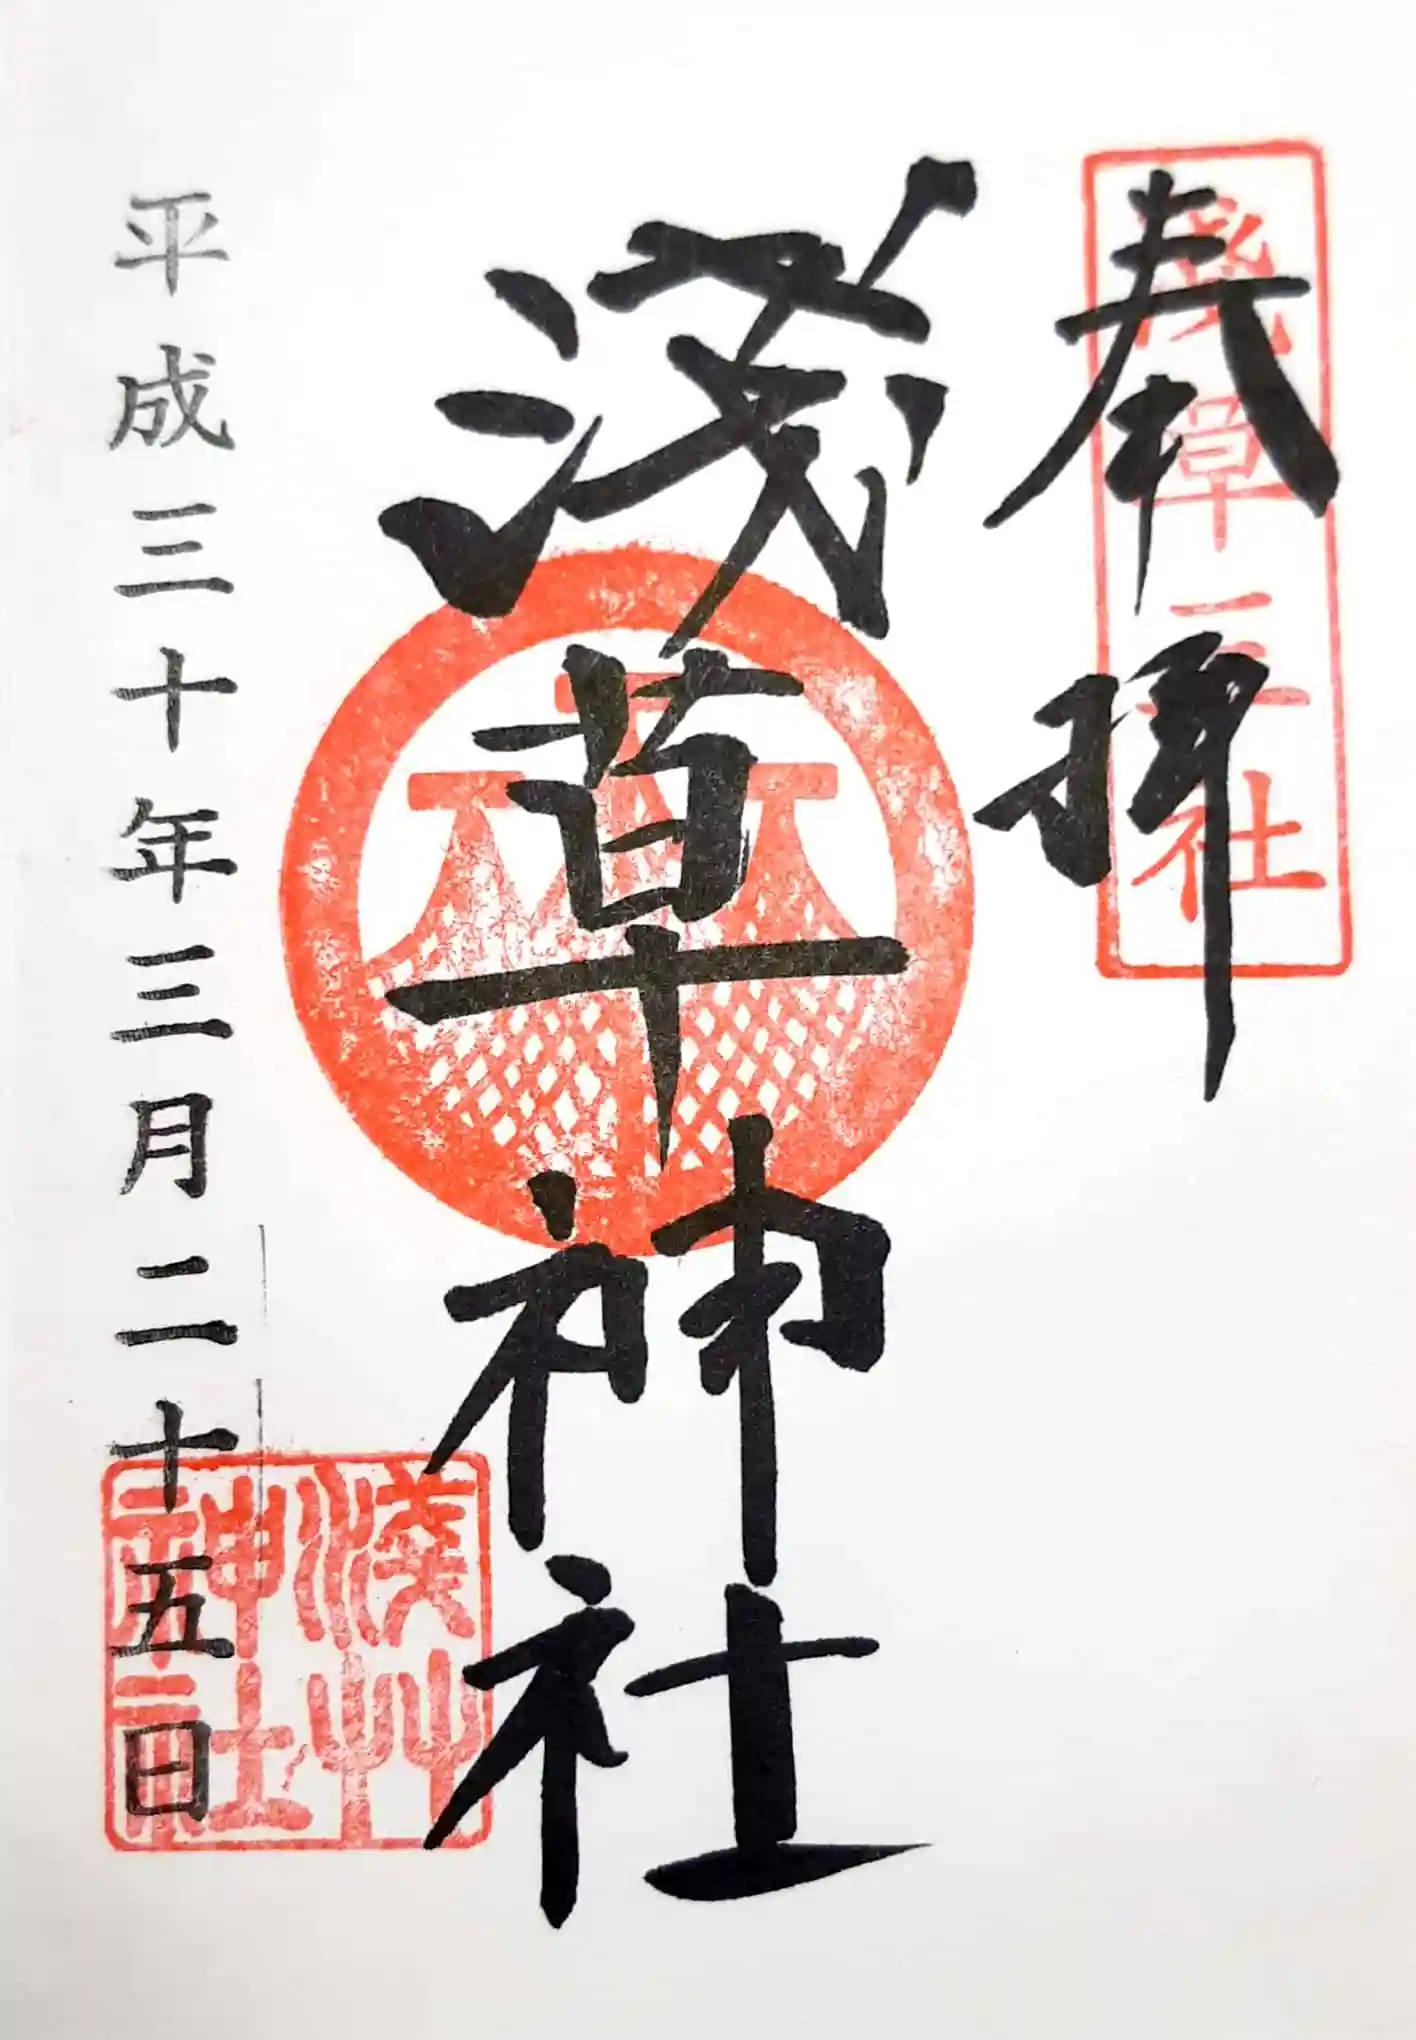 奉拝
浅草三社
浅草神社
平成三十年三月二十五日
淺艸神社